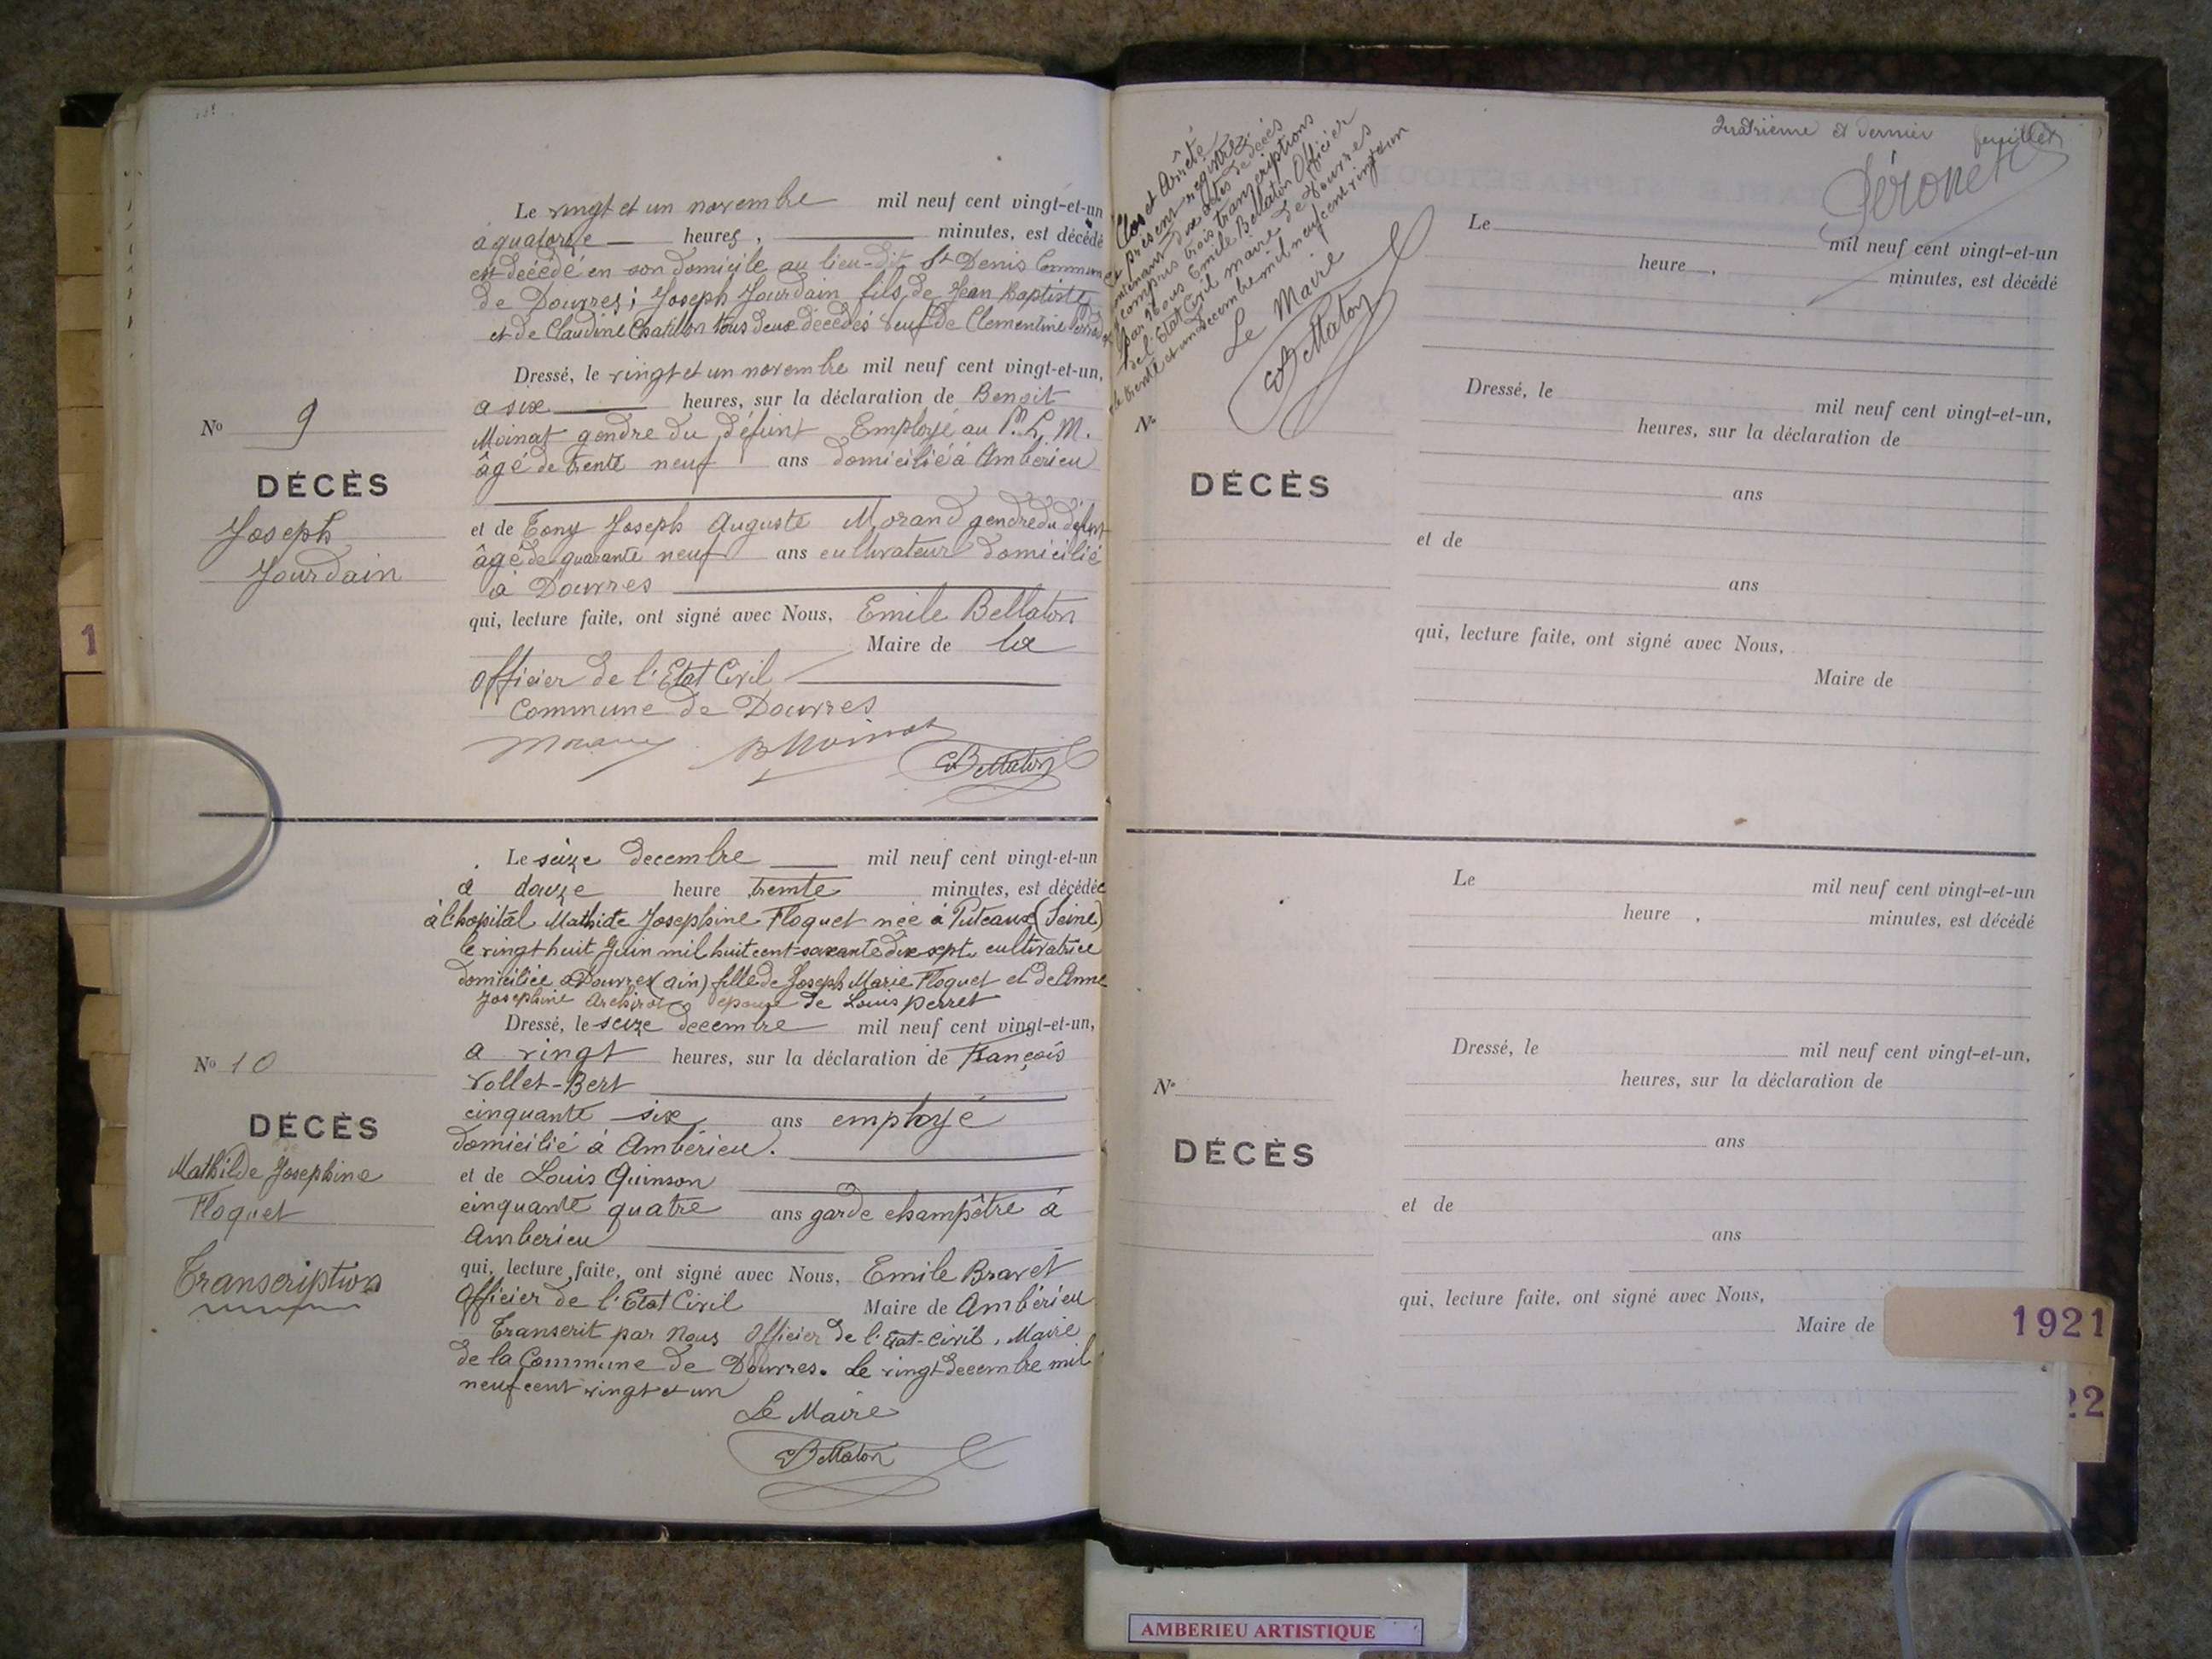 Le vingt et un novembre mil neuf cent vingt-et-un
à quatorze heures, minutes, est décédé
est décédé en son domicile au lieu-dit St Denis Commune
de Douvres; Joseph Jourdain fils de Jean Baptiste
et de Claudine Chatillon tous deux décédés veuf de Clementine
Dressé, le vingt et un novembre mil neuf cent vingt-et-un,
a six heures, sur la déclaration de Benoit
Moinat gendre du défunt Employé au P. L. M.
âgé de trente neuf ans domicilié à Amberieu
No 9
DÉCÈS
Joseph
Jourdain
et de Tony Joseph Auguste Morand gendre du défunt
âgé de quarante neuf ans cultivateur domicilié
à Douvres
qui, lecture faite, ont signé avec Nous, Emile Bellaton
Maire de la
officier de l'Etat Civil
Commune de Douvres
B Moinat
EBellaton
1
Le seize decembre mil neuf cent vingt-et-un
a douze heure trente minutes, est décédée
à l'hopital Mathilde Josephine Floquet née à Puteaux (Seine)
le vingt huit Juin mil huit cent soixante dix sept cultivatrice
domiciliée a Douvres (ain) fille de Joseph Marie Floquet et de Anne
Josephine epouse de Louis perret
Dressé, le seize decembre mil neuf cent vingt-et-un,
a vingt heures, sur la déclaration de François
Vollet-Bert
cinquante six ans employé
domicilié à Ambérieu.
No 10
DÉCÈS
Mathilde Josephine
Floquet
Transcription
et de Louis Quinson
cinquante quatre ans garde champêtre à
Amberieu
qui, lecture faite, ont signé avec Nous, Emile Bravet
Officier de l'Etat Civil Maire de Ambérieu
Transcrit par Nous Officier de l'Etat-Civil, Maire
de la Commune de Douvres. Le vingt decembre mil
neuf cent vingt et un
Le Maire
EBellaton
Clos et Arrêté
le présent registre
contenant dix actes de décès
y compris trois transcriptions
par Nous Emile Bellaton Officier
de l'Etat Civil maire de Douvres
le trente et un decembre mil neuf cent vingt et un
Le Maire
EBellaton
Quatrième et dernier feuillet
Le mil neuf cent vingt-et-un
heure , minutes, est décédé
Dressé, le mil neuf cent vingt-et-un,
heures, sur la déclaration de
No
DÉCÈS
ans
et de
ans
qui, lecture faite, ont signé avec Nous,
Maire de
Le mil neuf cent vingt-et-un
heure , minutes, est décédé
Dressé, le mil neuf cent vingt-et-un,
heures, sur la déclaration de
No
DÉCÈS
ans
et de
ans
qui, lecture faite, ont signé avec Nous,
Maire de
1921
22
AMBERIEU ARTISTIQUE